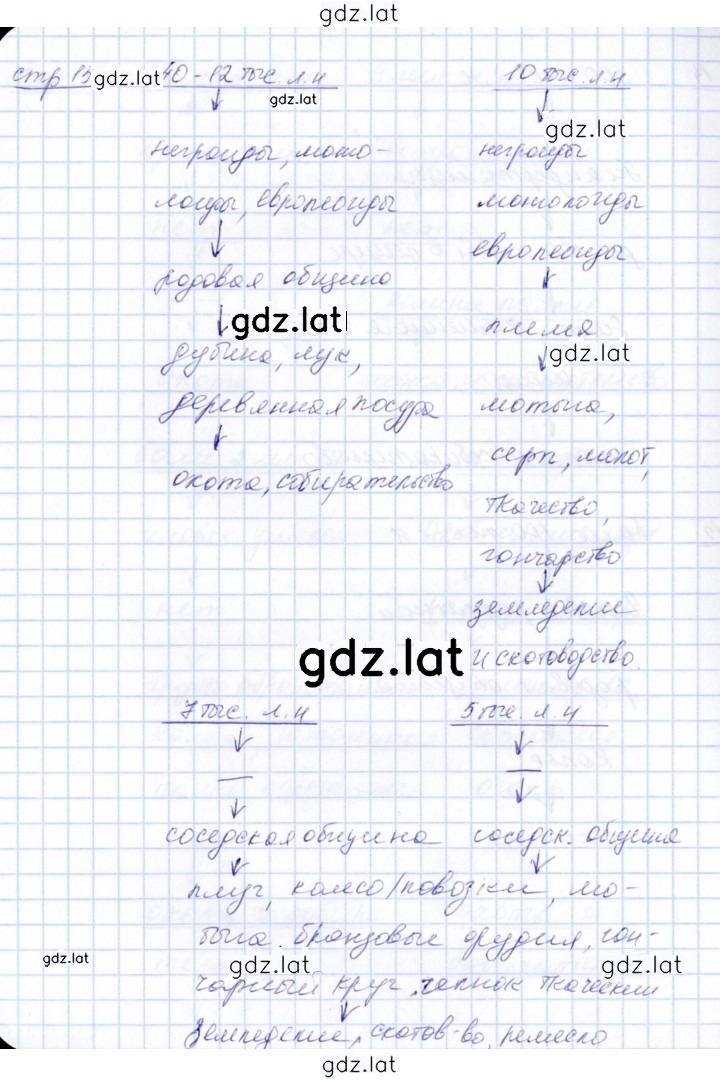 gdz.lat
стр 13 gdz.lat 40-12 тыс. л. н
gdz.lat
негроиды, моно-
лоиды, европеоиды
родовая община
gdz.lat
дубина, лук,
деревянная посуда
охота, собирательство
10 тыс. л н
gdz.lat
негроиды
монголоиды
европеоиды
племя
gdz.lat
мотыга,
серп, молот,
ткачество,
гончарство
земледелие
и скотоводство.
gdz.lat
7 тыс. л. н
—
соседская община
5 тыс. л. н
—
соседск. община
плуг, колесо/повозки, мо-
тыга. бронзовые орудия, гон-
чарный круг, челнок ткацкий
земледелие, скотов-во, ремесло
gdz.lat
gdz.lat
gdz.lat
gdz.lat